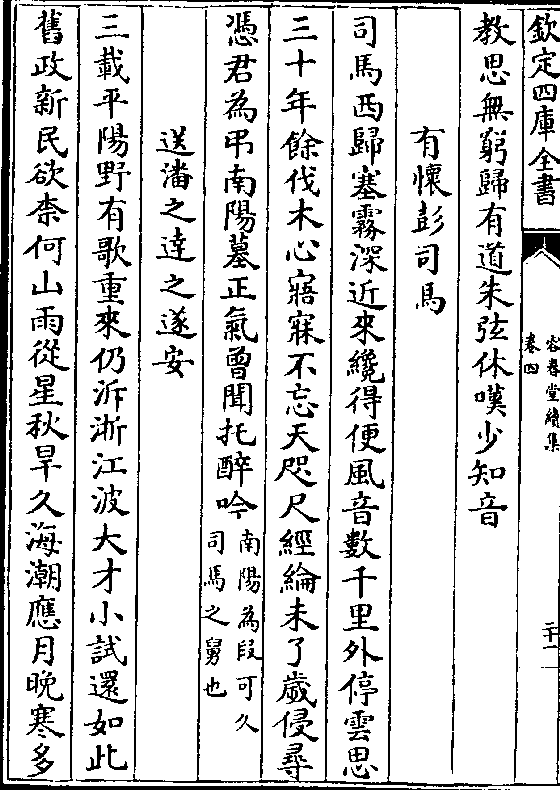 欽定四庫全書
容春堂續集
卷四
二十二
教思無窮歸有道朱弦休嘆少知音
有懷彭司馬
司馬西歸塞霧深近來纔得便風音數千里外停雲思
三十年餘伐木心寤寐不忘天咫尺經綸未了歲侵尋
憑君為弔南陽墓正氣曾聞托醉吟
南陽為段可久
司馬之舅也
送潘之達之遂安
三載平陽野有歌重來仍泝浙江波大才小試還如此
舊政新民欲柰何山雨從星秋旱久海潮應月晚寒多